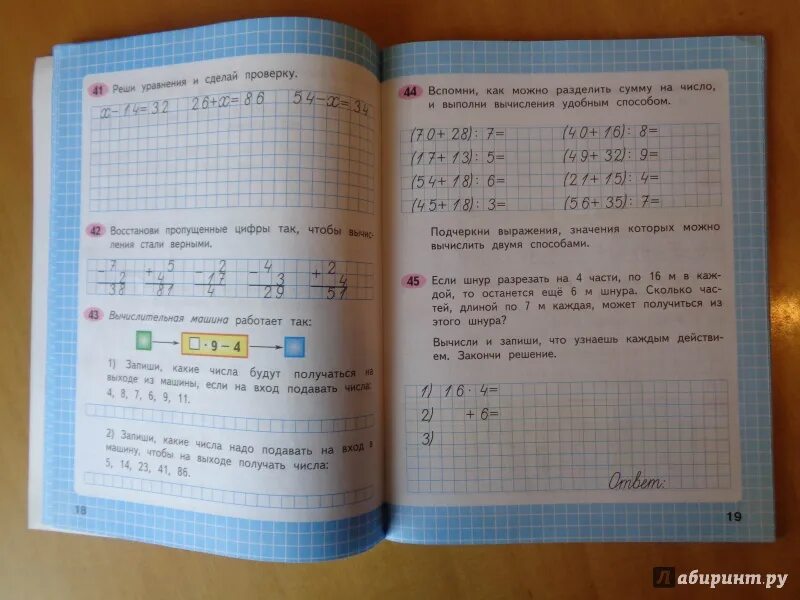 41 Реши уравнения и сделай проверку.
x-14=32 26+x=86 54-x=34
42 Восстанови пропущенные цифры так, чтобы вычис-
ления стали верными.
- 7 + 5 - 2 - 4 + 2
2 4 17 3 4
38 81 4 29 51
43 Вычислительная машина работает так:
□ · 9 – 4
1) Запиши, какие числа будут получаться на
выходе из машины, если на вход подавать числа:
4, 8, 7, 6, 9, 11.
2) Запиши, какие числа надо подавать на вход в
машину, чтобы на выходе получать числа:
5, 14, 23, 41, 86.
18
44 Вспомни, как можно разделить сумму на число,
и выполни вычисления удобным способом.
(70+28): 7= (40+16): 8=
(17+13): 5= (49+32): 9=
(54+18): 6= (21+15): 4=
(45+18): 3= (56+35): 7=
Подчеркни выражения, значения которых можно
вычислить двумя способами.
45 Если шнур разрезать на 4 части, по 16 м в каж-
дой, то останется ещё 6 м шнура. Сколько час-
тей, длиной по 7 м каждая, может получиться из
этого шнура?
Вычисли и запиши, что узнаешь каждым действи-
ем. Закончи решение.
1) 16·4=
2) +6=
3)
Ответ:
19
Лабиринт.ру